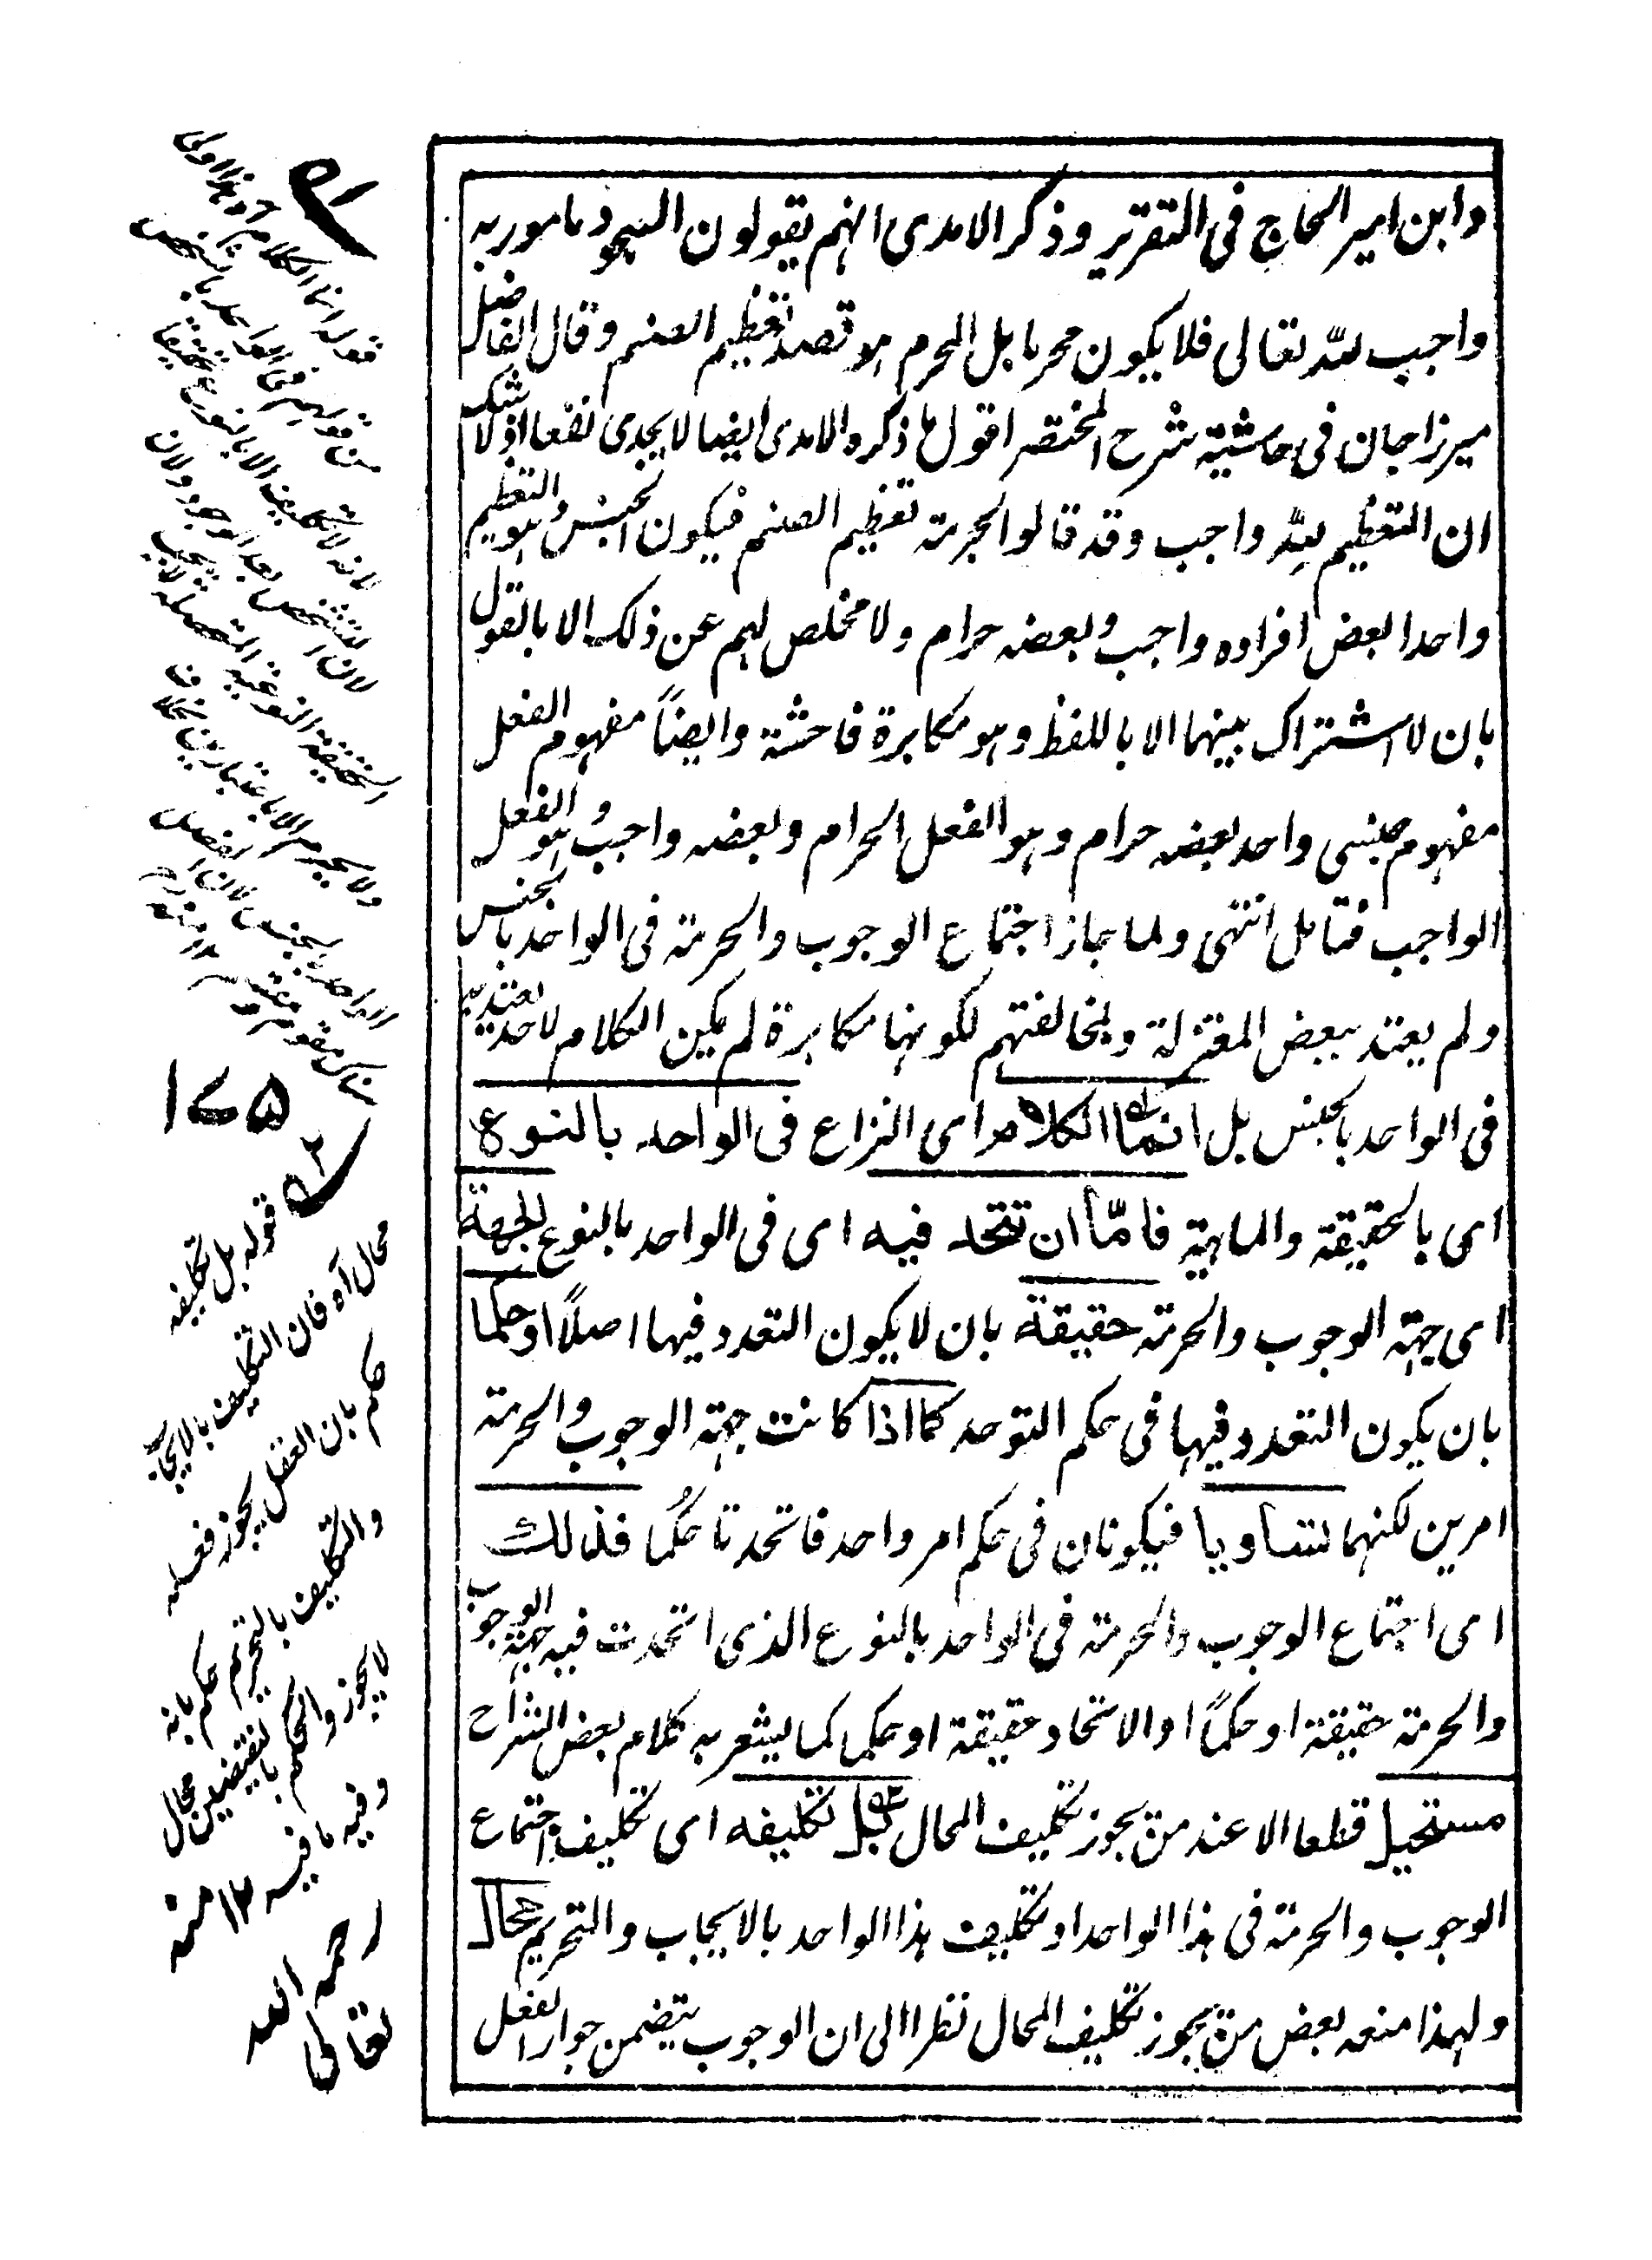 وابن امير الحاج فى التقرير وذكر الامدى انهم يقولون السجود مامور به
واجب لله تعالى فلا يكون محرما بل المحرم هو قصد تعظيم الصنم وقال الفاضل
ميرزاجان فى حاشية شرح المختصر اقول ما ذكره الامدى ايضا لا يجدى نفعا اذ لا شك
ان التعظيم لله واجب وقد قالوا الحرمة تعظيم الصنم فيكون الجنس وهو التعظيم
واحدا بعض افراده واجب وبعضه حرام ولا مخلص لهم عن ذلك الا بالقول
بان لا اشتراك بينهما الا باللفظ وهو مكابرة فاحشة وايضاً مفهوم الفعل
مفهوم جنسى واحد بعضه حرام وهو الفعل الحرام وبعضه واجب وهو الفعل
الواجب فتامل انتهى ولما جاز اجتماع الوجوب والحرمة فى الواحد بالجنس
ولم يعتد ببعض المعتزلة ولمخالفتهم لكونها مكابرة لم يكن الكلام لاحد يعتد به
فى الواحد بالجنس بل انما الكلام اى النزاع فى الواحد بالنوع
اى بالحقيقة والماهية فامّا ان تتحد فيه اى فى الواحد بالنوع الجهة
اى جهة الوجوب والحرمة حقيقة بان لا يكون التعدد فيها اصلاً او حكما
بان يكون التعدد فيها فى حكم التوحد كما اذا كانت جهة الوجوب والحرمة
امرين لكنهما تساويا فيكونان فى حكم امر واحد فاتحدتا حكما فذلك
اى اجتماع الوجوب والحرمة فى الواحد بالنوع الذى اتحدت فيه جهة الوجوب
والحرمة حقيقة او حكماً او الاتحاد حقيقة او حكما كما يشعر به كلام بعض الشراح
مستحيل قطعا الا عند من يجوز تكليف المحال بل تكليفه اى تكليف اجتماع
الوجوب والحرمة فى هذا الواحد او تكليف هذا الواحد بالايجاب والتحريم محال
ولهذا منعه بعض من يجوز تكليف المحال نظرا الى ان الوجوب يتضمن جواز الفعل
قوله انما الكلام
فى الواحد بالشخص
لانه لا تكليف الا بالنوع
بعد الوجود ولان
الحقيقة النوعية المتحصلة
ولا يحرم الا باعتبار
١٧٥
قوله بل تكليفه
محال آه فان التكليف بالايجاب
حكم بان العقل يجوز فعله
والتكليف بالتحريم حكم بانه
لا يجوز والحكم بالنقيضين محال
وفيه ما فيه ١٢ منه
رحمه الله
تعالى